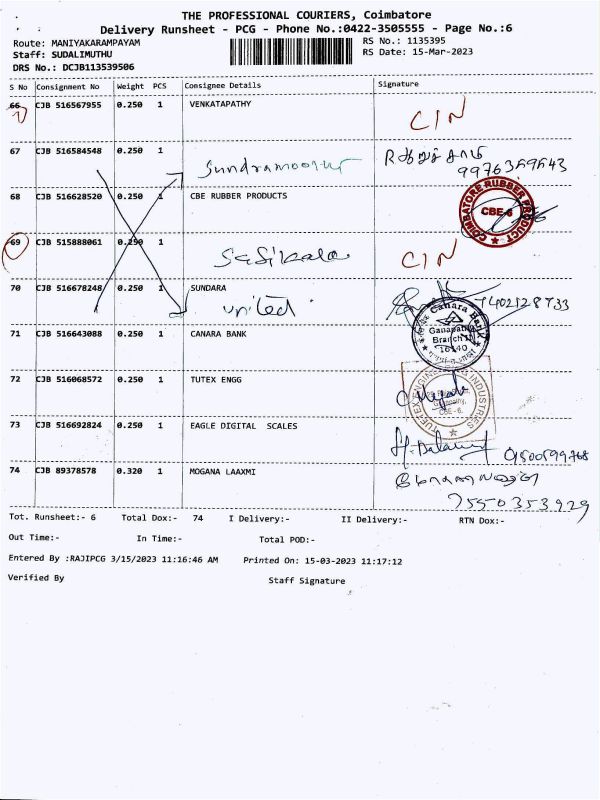 THE PROFESSIONAL COURIERS, Coimbatore
Delivery Runsheet - PCG - Phone No.:0422-3505555 - Page No.:6
Route: MANIYAKARAMPAYAM RS No.: 1135395
Staff: SUDALIMUTHU RS Date: 15-Mar-2023
DRS No.: DCJB113539506
S No Consignment No Weight PCS Consignee Details Signature
66 CJB 516567955 0.250 1 VENKATAPATHY
CIN
67 CJB 516584548 0.250 1
Sundramoorthy 9976369643
68 CJB 516628520 0.250 1 CBE RUBBER PRODUCTS
COIMBATORE RUBBER PRODUCT
CBE-6
69 CJB 515888061 0.250 1
Sasikala CIN
70 CJB 516678248 0.250 1 SUNDARA
united 7402128733
71 CJB 516643088 0.250 1 CANARA BANK
Canara Bank
Ganapathy
Branch II
16140
72 CJB 516068572 0.250 1 TUTEX ENGG
Ganapathy,
CBE-6.
73 CJB 516692824 0.250 1 EAGLE DIGITAL SCALES
74 CJB 89378578 0.320 1 MOGANA LAAXMI
7550353929
Tot. Runsheet:- 6 Total Dox:- 74 I Delivery:- II Delivery:- RTN Dox:-
Out Time:- In Time:- Total POD:-
Entered By :RAJIPCG 3/15/2023 11:16:46 AM Printed On: 15-03-2023 11:17:12
Verified By Staff Signature